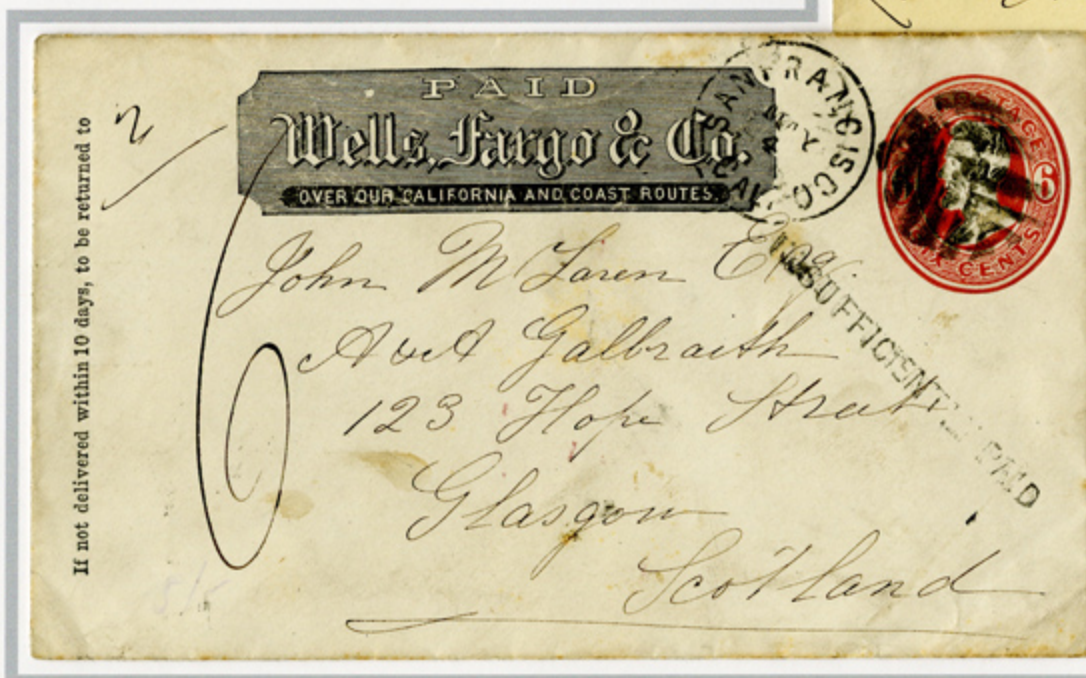 If not delivered within 10 days, to be returned to
PAID
Wells, Fargo & Co.
OVER OUR CALIFORNIA AND COAST ROUTES.
SAN FRANCISCO
MAY
CAL
POSTAGE
6
SIX CENTS
INSUFFICIENTLY PAID
John McLaren Esq.
A & A Galbraith
123 Hope Street
Glasgow
Scotland
6